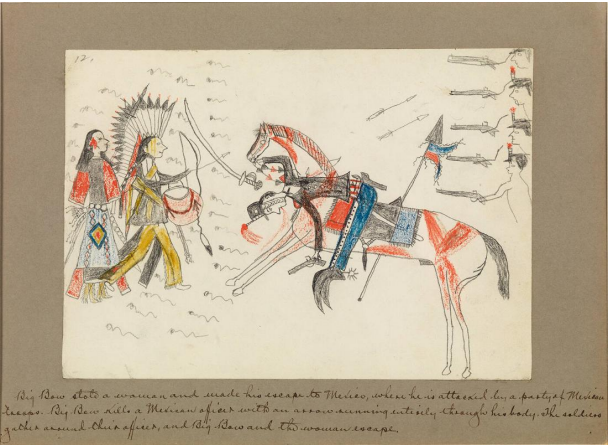 12.
Big Bow stole a woman and made his escape to Mexico, where he is attacked by a party of Mexican
troops. Big Bow kills a Mexican officer with an arrow running entirely through his body. The soldiers
gather around their officer, and Big Bow and the woman escape.